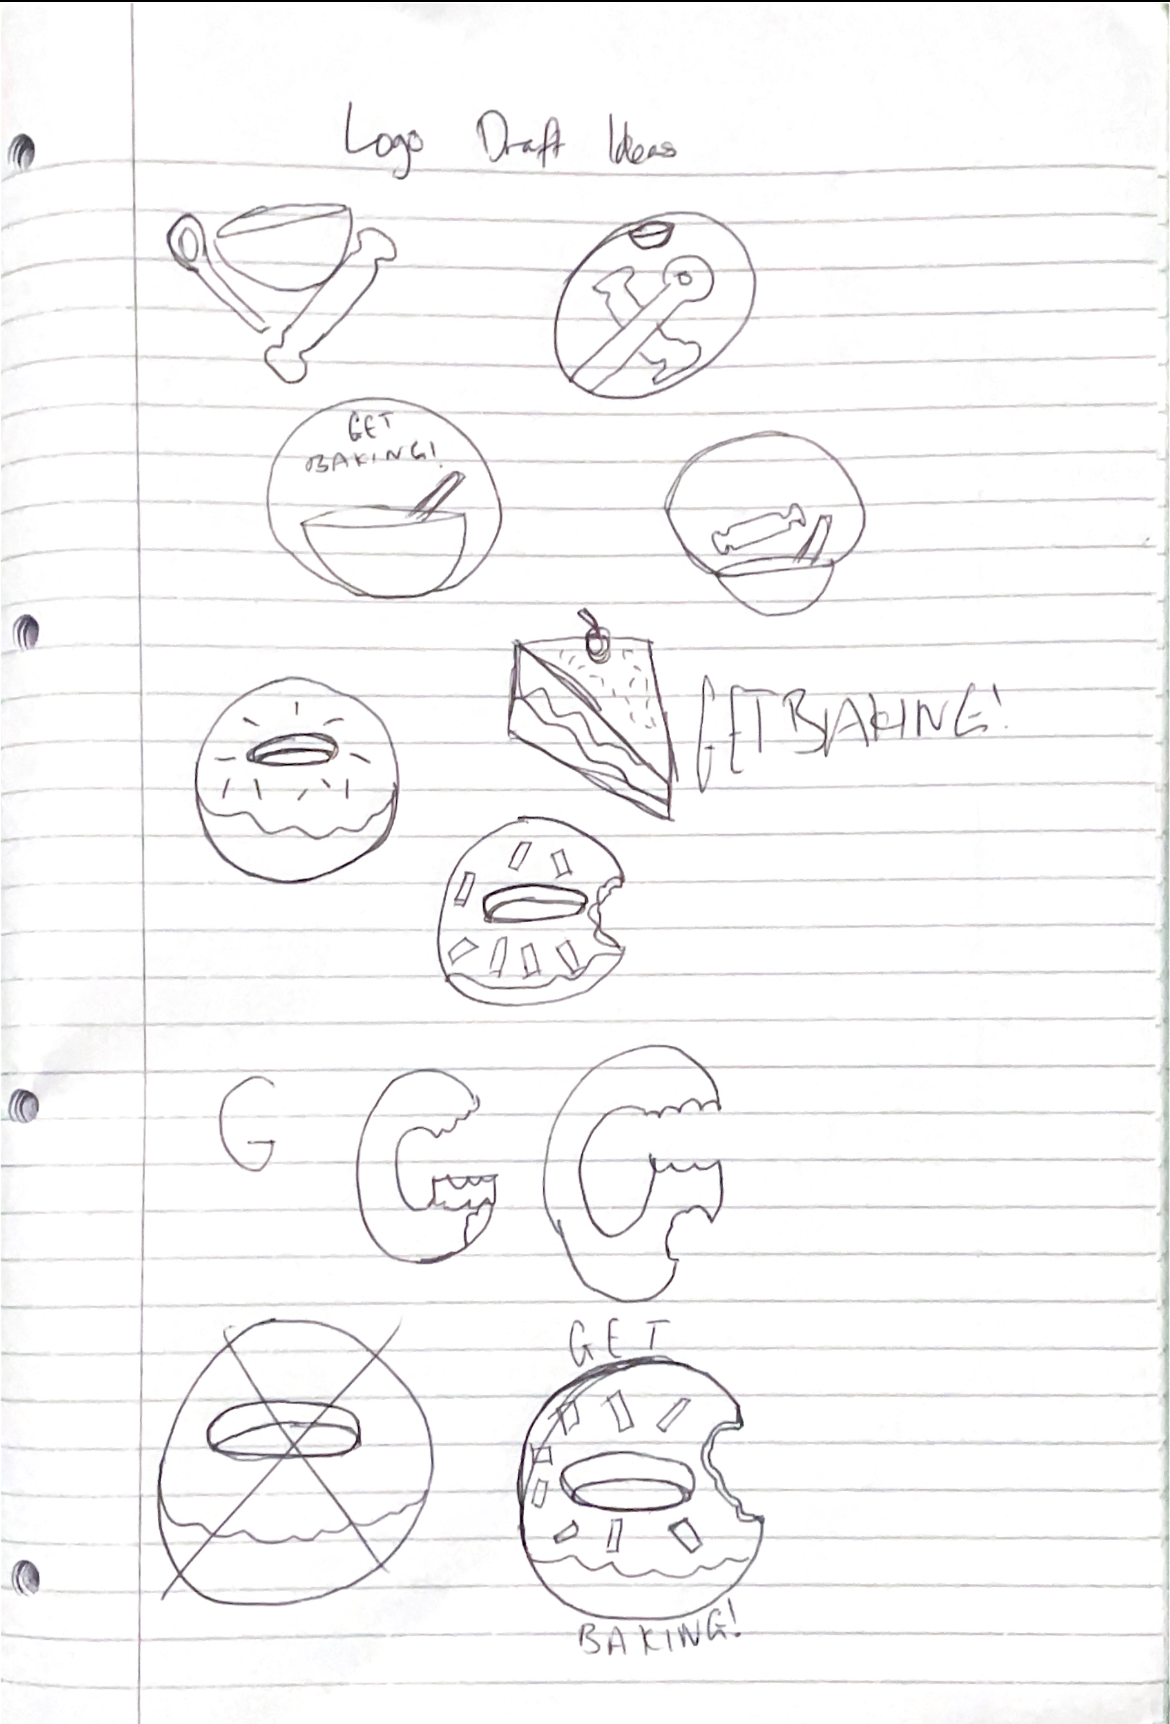 Logo Draft Ideas
GET
BAKING!
GET BAKING!
G
GET
BAKING!